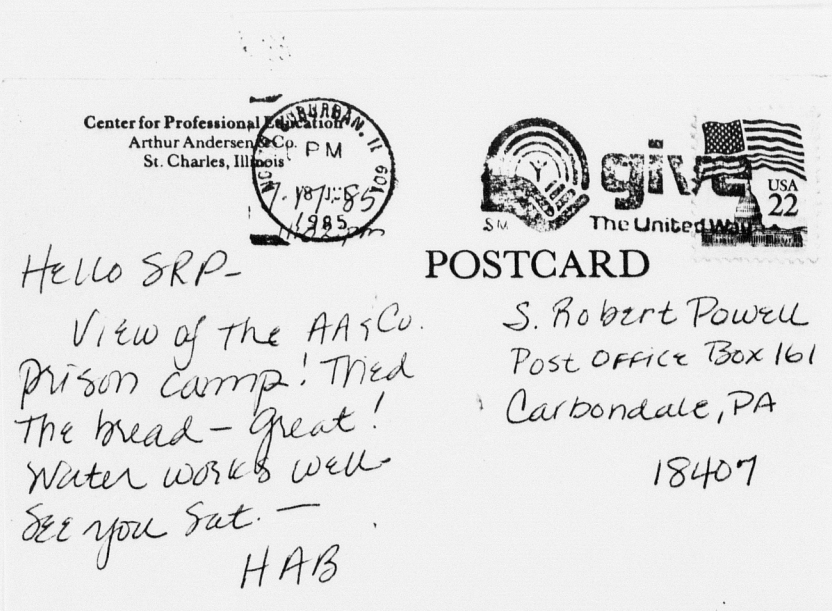 Center for Professional Education
Arthur Andersen & Co.
St. Charles, Illinois
SUBURBAN, IL 601
PM
18 JUL
1985
7-17-85
pm
give
SM
The United Way
USA
22
POSTCARD
Hello SRP-
View of the AA & Co.
prison camp! Tried
the bread - Great!
Water works well
See you Sat. —
HAB
S. Robert Powell
Post Office Box 161
Carbondale, PA
18407